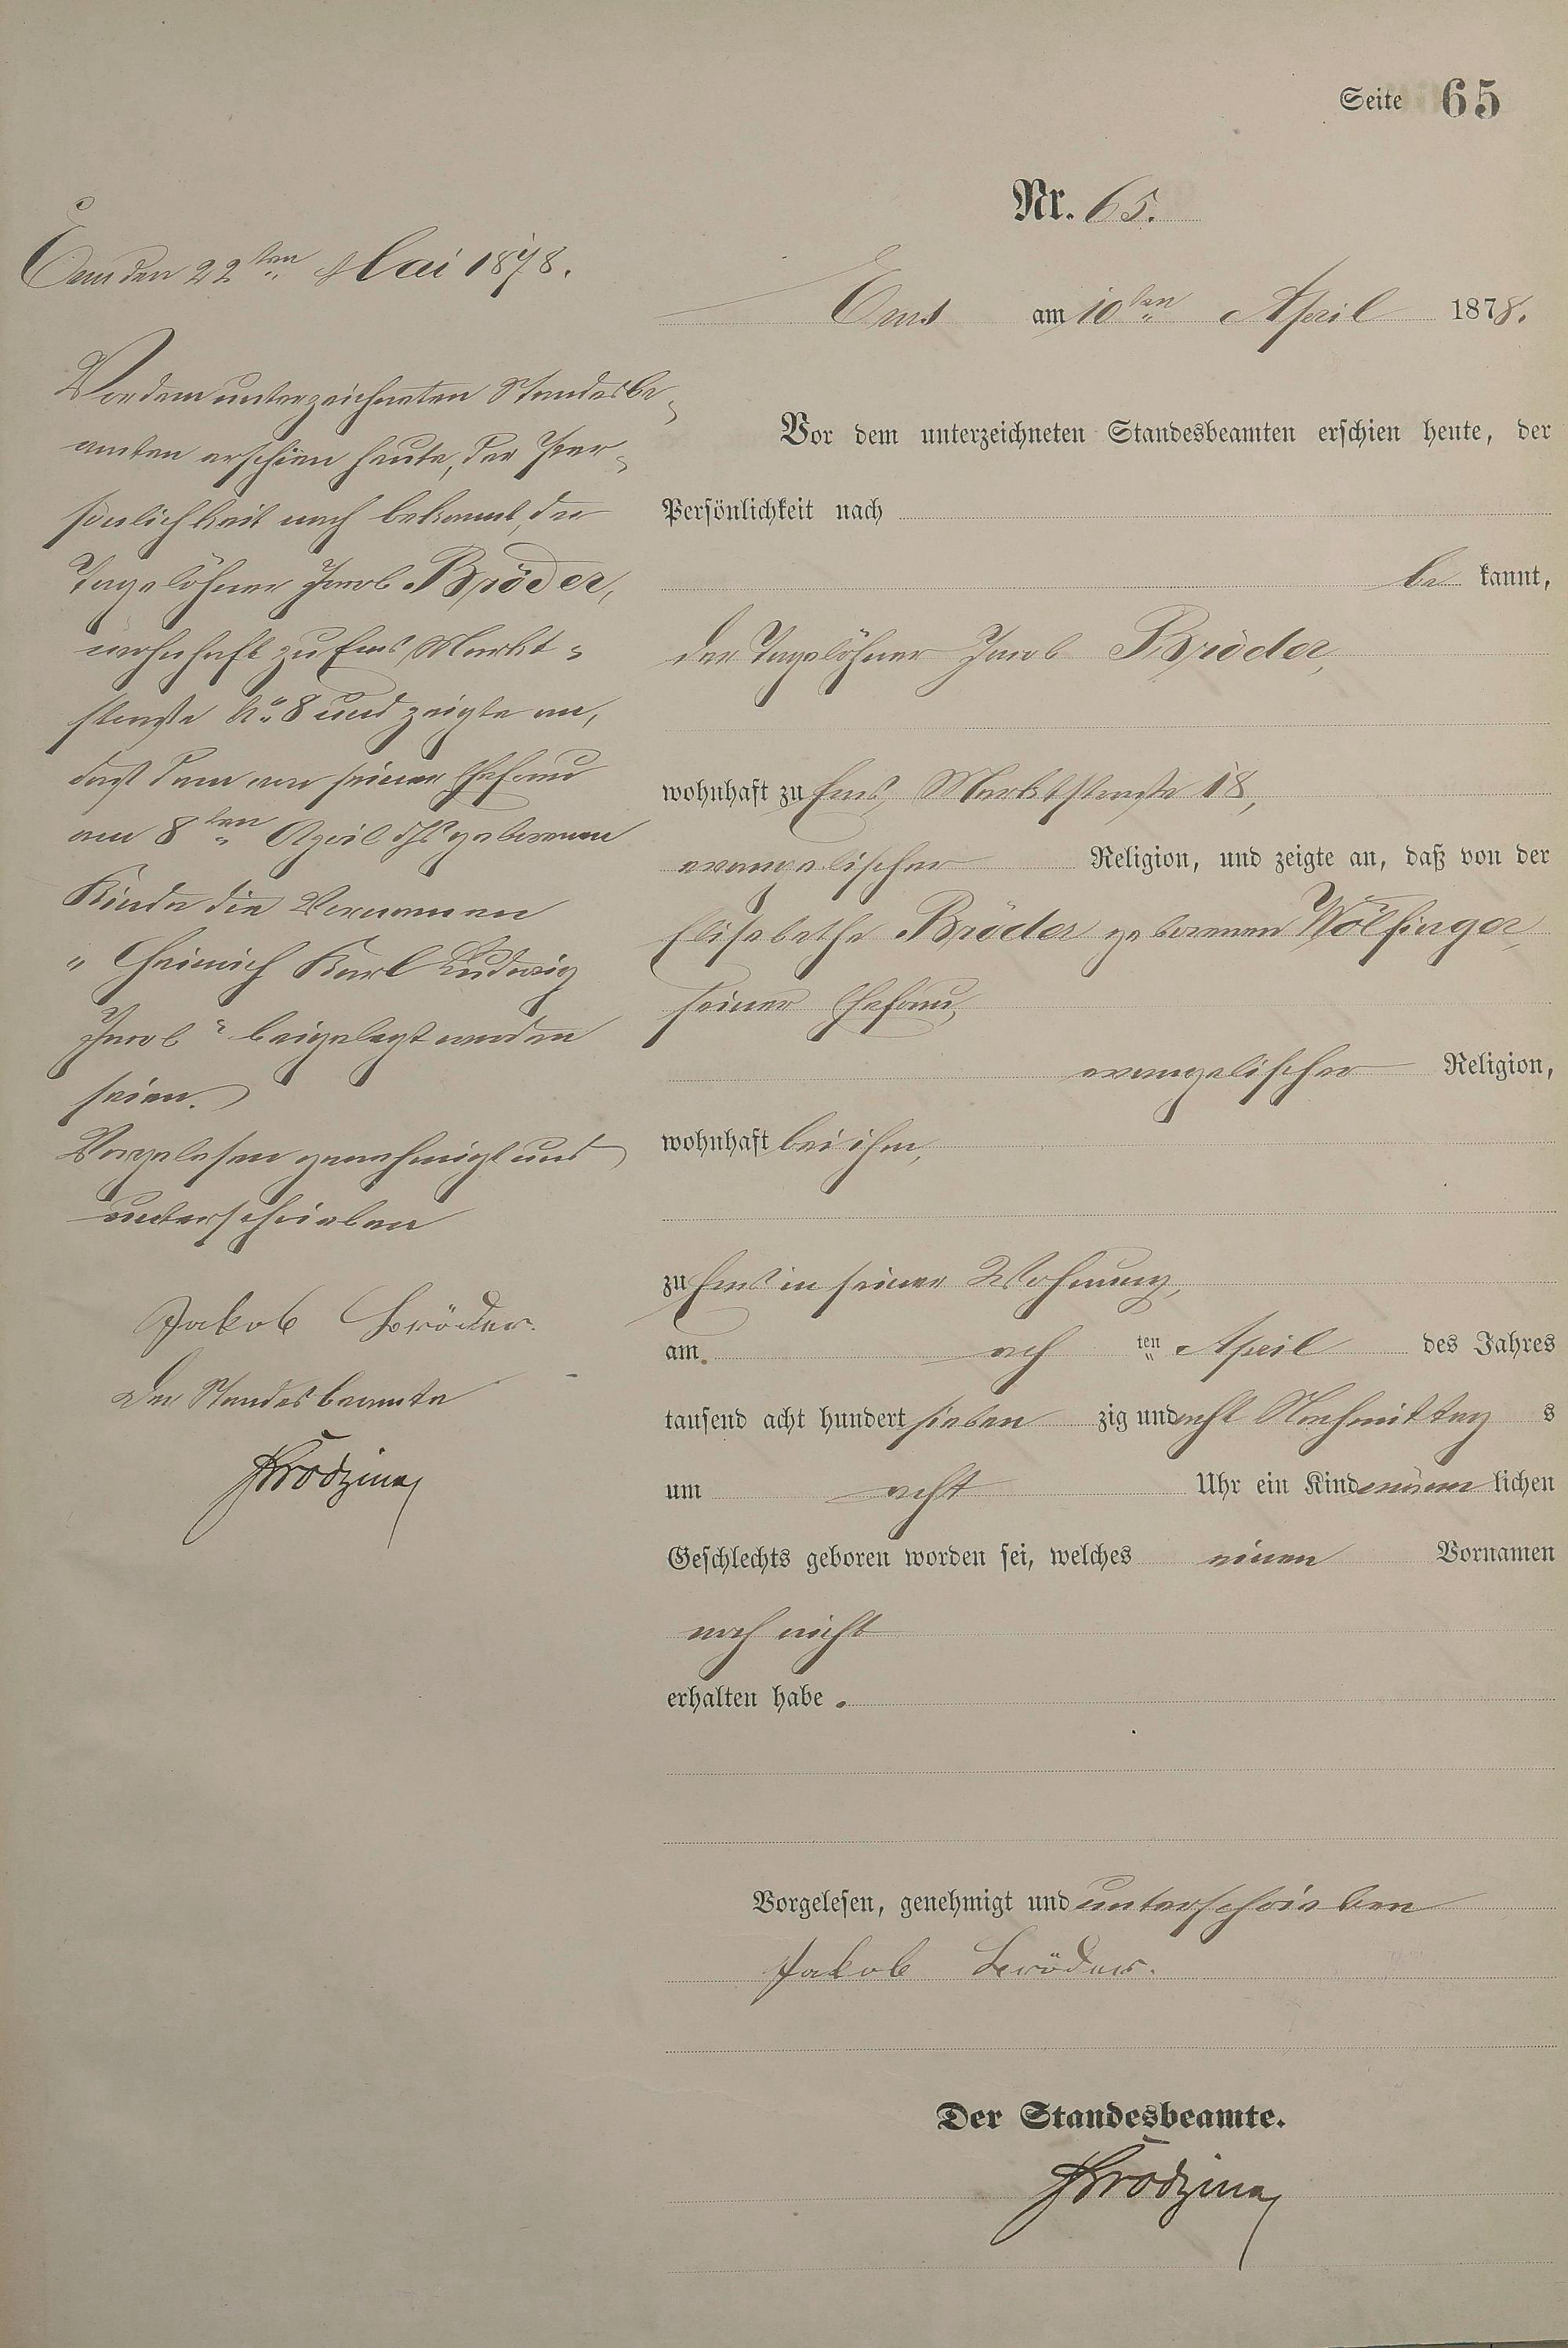 Seite 65
Nr. 65.
Ems am 10ten April 1878.
Vor dem unterzeichneten Standesbeamten erschien heute, der
Persönlichkeit nach
be kannt,
der Tagelöhner Jacob Bröder,
wohnhaft zu Ems, Marktstraße 18,
evangelischer Religion, und zeigte an, daß von der
Elisabethe Bröder geborenen Wölfinger,
seiner Ehefrau,
evangelischer Religion,
wohnhaft bei ihm,
zu Ems in seiner Wohnung,
am ach ten April des Jahres
tausend acht hundert sieben zig und acht Nachmittag s
um acht Uhr ein Kind männ lichen
Geschlechts geboren worden sei, welches einen Vornamen
noch nicht
erhalten habe.
Vorgelesen, genehmigt und unterschrieben
Jakob Bröder.
Der Standesbeamte.
Ems den 22ten Mai 1878.
Vor dem unterzeichneten Standesbe-
amten erschien heute, der Per-
sönlichkeit nach bekannt, der
Tagelöhner Jacob Bröder,
wohnhaft zu Ems Markt-
straße No 8 und zeigte an,
daß dem von seiner Ehefrau
am 8ten April ds Js geborenen
Kinde die Vornamen
"Heinrich Karl Ludwig
Jacob" beigelegt worden
seien.
Vorgelesen genehmigt und
unterschrieben
Jakob Bröder.
Der Standesbeamte